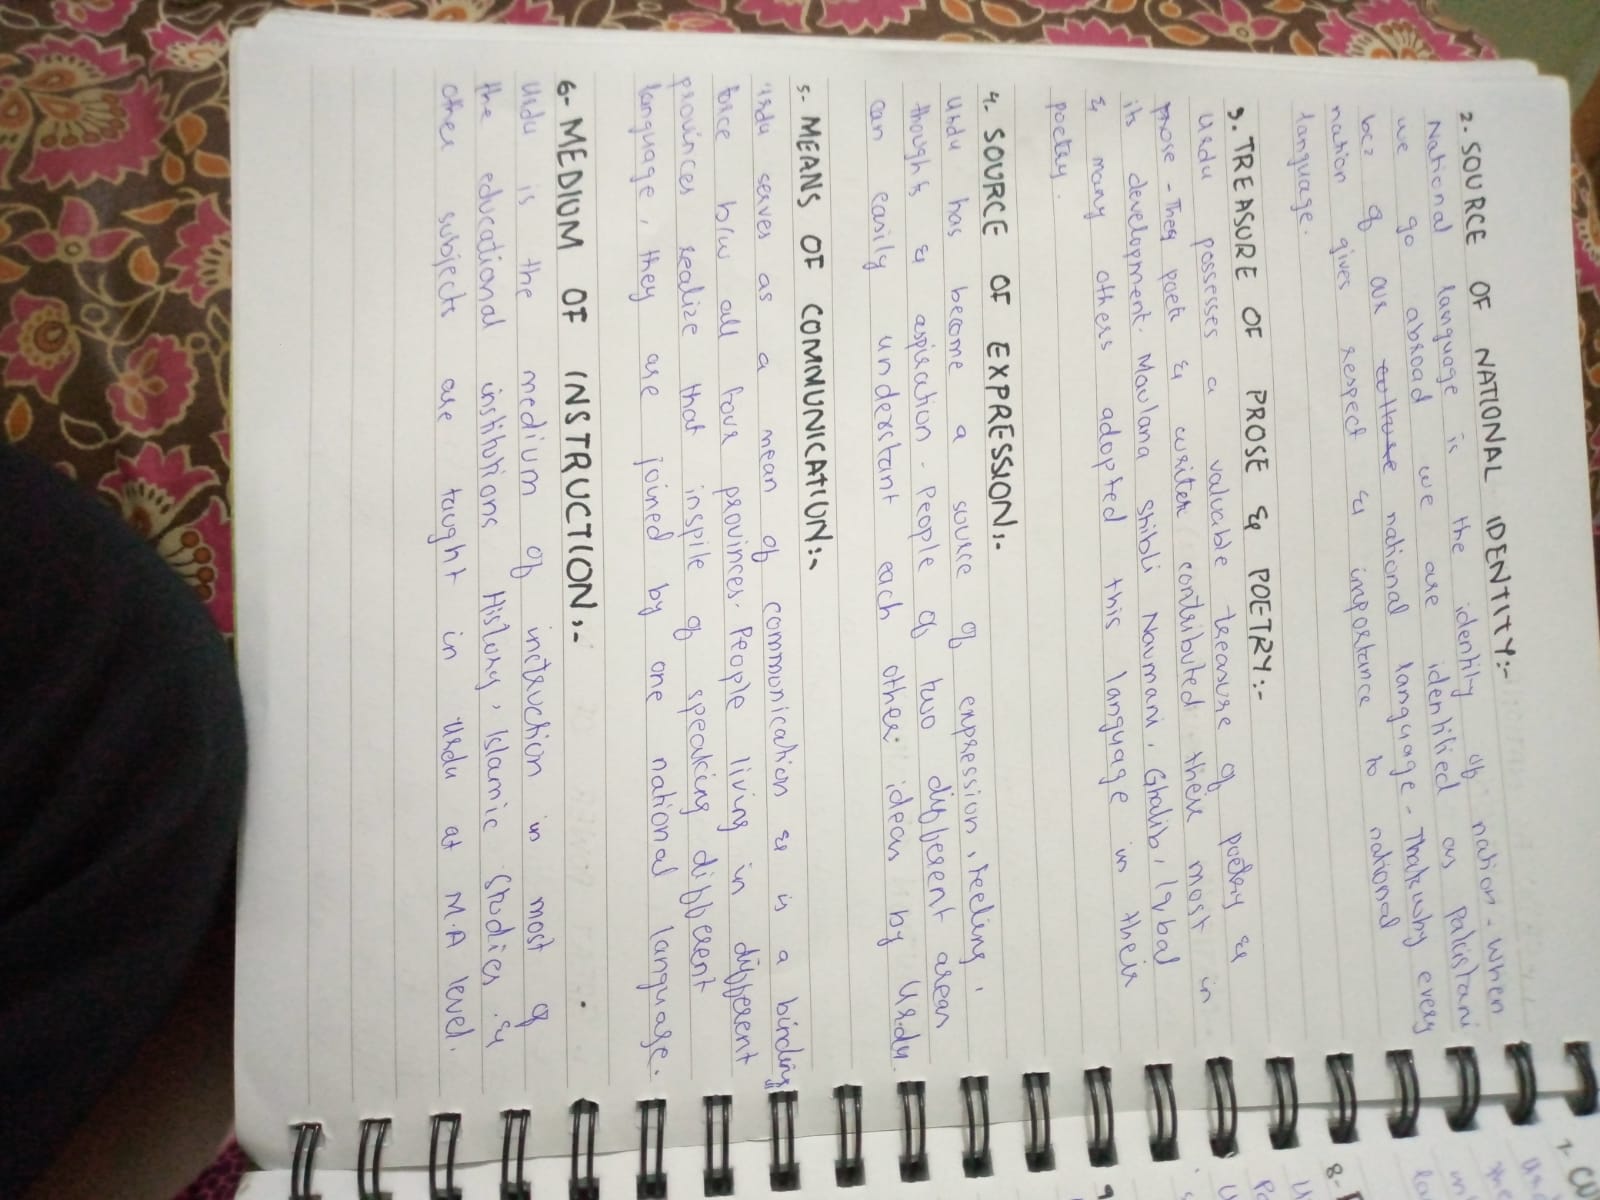 2. SOURCE OF NATIONAL IDENTITY:-
National language is the identity of nation. When
we go abroad we are identified as Pakistani
bcz of our culture national language - Thatswhy every
nation gives respect & importance to national
language.
3. TREASURE OF PROSE & POETRY:-
Urdu possesses a valuable treasure of poetry &
prose - They poets & writers contributed their most in
its development. Maulana Shibli Naumani, Ghalib, Iqbal
& many others adopted this language in their
poetry.
4. SOURCE OF EXPRESSION:-
Urdu has become a source of expression, feeling,
thoughts & aspiration. People of two different areas
can easily understant each other ideas by Urdu.
5. MEANS OF COMMUNICATION:-
Urdu serves as a mean of communication & is a binding
force b/w all four provinces. People living in different
provinces realize that inspite of speaking different
language, they are joined by one national language.
6- MEDIUM OF INSTRUCTION:-
Urdu is the medium of instruction in most of
the educational institutions History, Islamic Studies &
other subjects are taught in Urdu at M.A level.
7. CU
8-
9